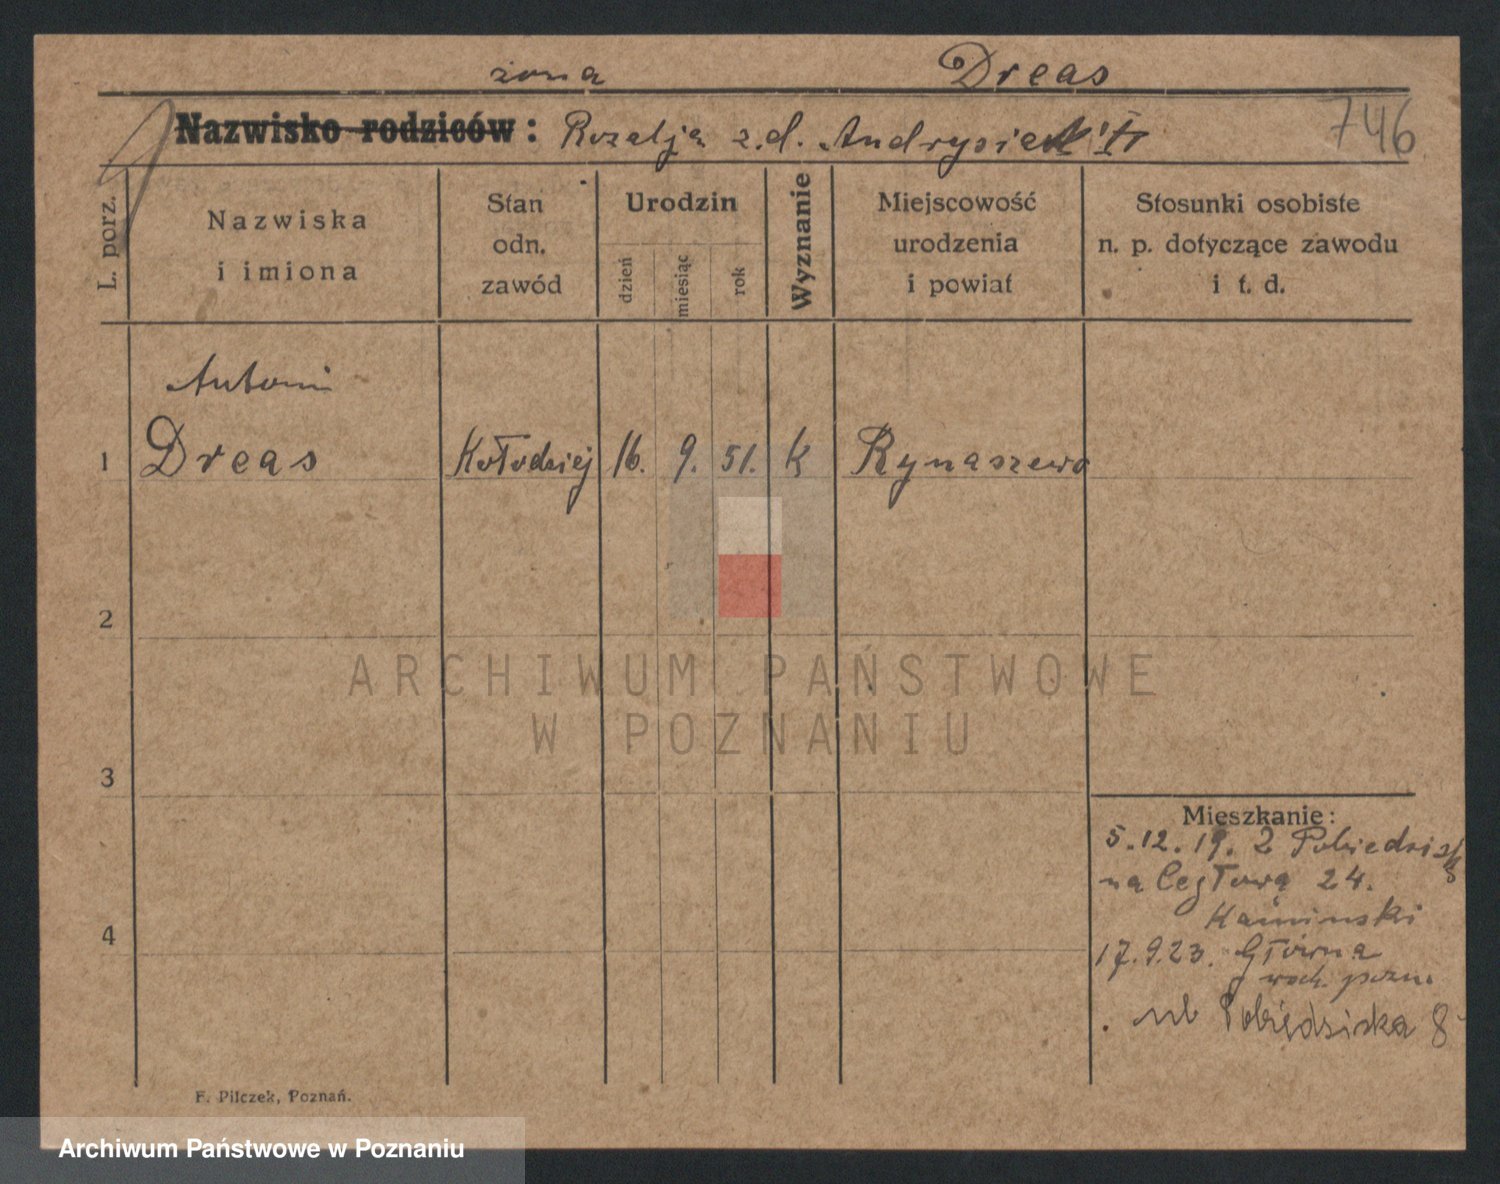 żona Dreas
Nazwisko rodziców: Rozalja z.d. Andrysiak
746
L. porz.
Nazwiska
i imiona
Stan
odn.
zawód
Urodzin
dzień
miesiąc
rok
Wyznanie
Miejscowość
urodzenia
i powiat
Stosunki osobiste
n. p. dotyczące zawodu
i t. d.
Antoni
1 Dreas Kołodziej 16. 9. 51. k Rynaszewo
2
ARCHIWUM PAŃSTWOWE
W POZNANIU
3
Mieszkanie:
5.12.19. z Pobiedzisk
na Cegłową 24.
Kamiński
4
17.9.23. Główna
pozn.
ul Pobiedziska 8
F. Pilczek, Poznań.
Archiwum Państwowe w Poznaniu